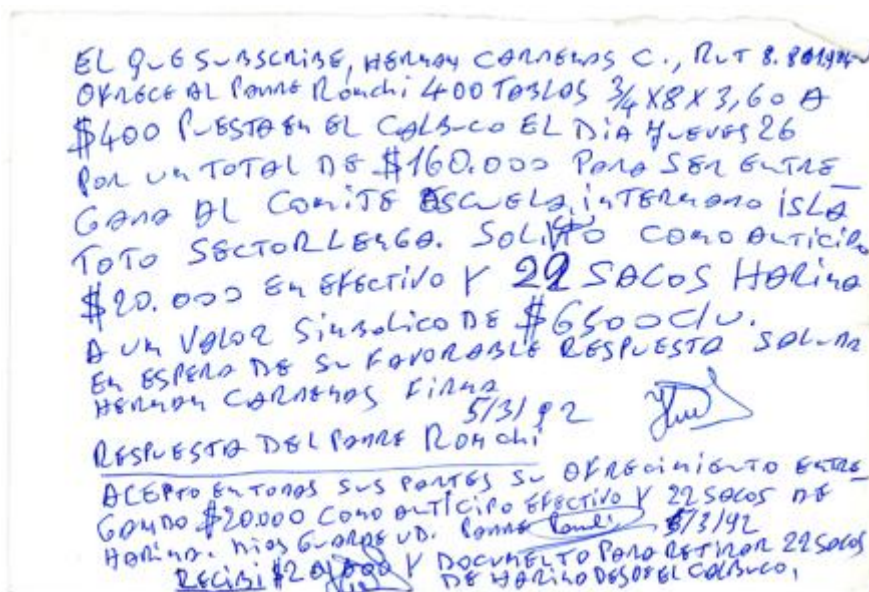 EL QUE SUBSCRIBE, HERNAN CARDENAS C., RUT 8.
OFRECE AL PADRE RONCHI 400 TABLAS 3/4 X 8 X 3,60 A
$400 PUESTA EN EL CALBUCO EL DIA JUEVES 26
POR UN TOTAL DE $160.000 PARA SER ENTRE_
GADA AL COMITE ESCUELA, INTERNADO ISLA
TOTO SECTOR LENGA. SOLICITO COMO ANTICIPO
$20.000 EN EFECTIVO Y 22 SACOS HARINA
A UN VALOR SIMBOLICO DE $6500 C/U.
EN ESPERA DE SU FAVORABLE RESPUESTA SALUDA
HERNAN CARDENAS FIRMA
5/3/92
RESPUESTA DEL PADRE RONCHI
ACEPTO EN TODAS SUS PARTES SU OFRECIMIENTO ENTRE_
GANDO $20.000 COMO ANTICIPO EFECTIVO Y 22 SACOS DE
HARINA. DIOS GUARDE UD. PADRE Ronchi /3/92
RECIBI Y DOCUMENTO PARA RETIRAR 22 SACOS
DE HARINA DESDE EL CALBUCO,